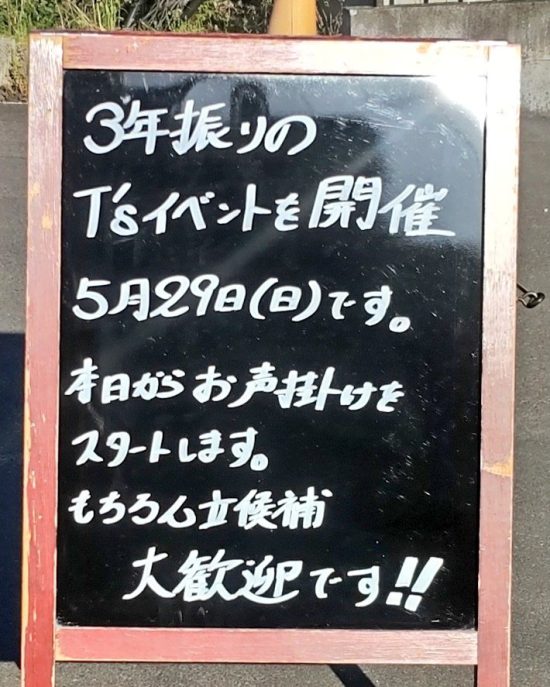 3年振りの
T'sイベントを開催
5月29日(日)です。
本日からお声掛けを
スタートします。
もちろん立候補
大歓迎です!!